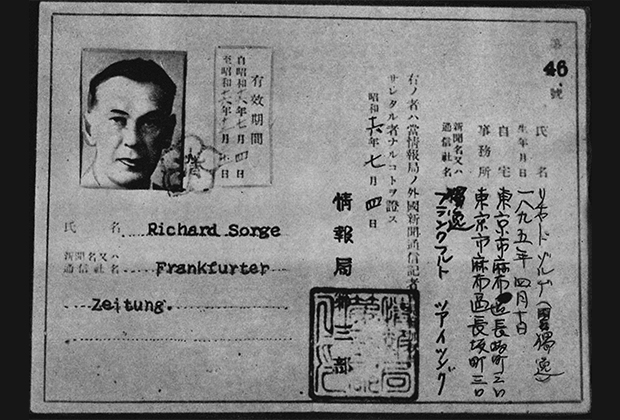 第
46.
號
氏名
生年月日 一八九五年四月十日
自宅 東京市麻布區長坂町三〇
事務所 東京市麻布區長坂町三〇
新聞名又ハ
通信社名
獨逸
フランクフルト ツアイツング
右ノ者ハ當情報局ノ外國新聞通信記者
サレタル者ナルコトヲ證ス
昭和十六年七月四日
情報局
第三部
有效期間
自昭和十六年七月四日
至昭和十六年
氏名 Richard Sorge
新聞名又ハ
通信社名
Frankfurter
Zeitung.